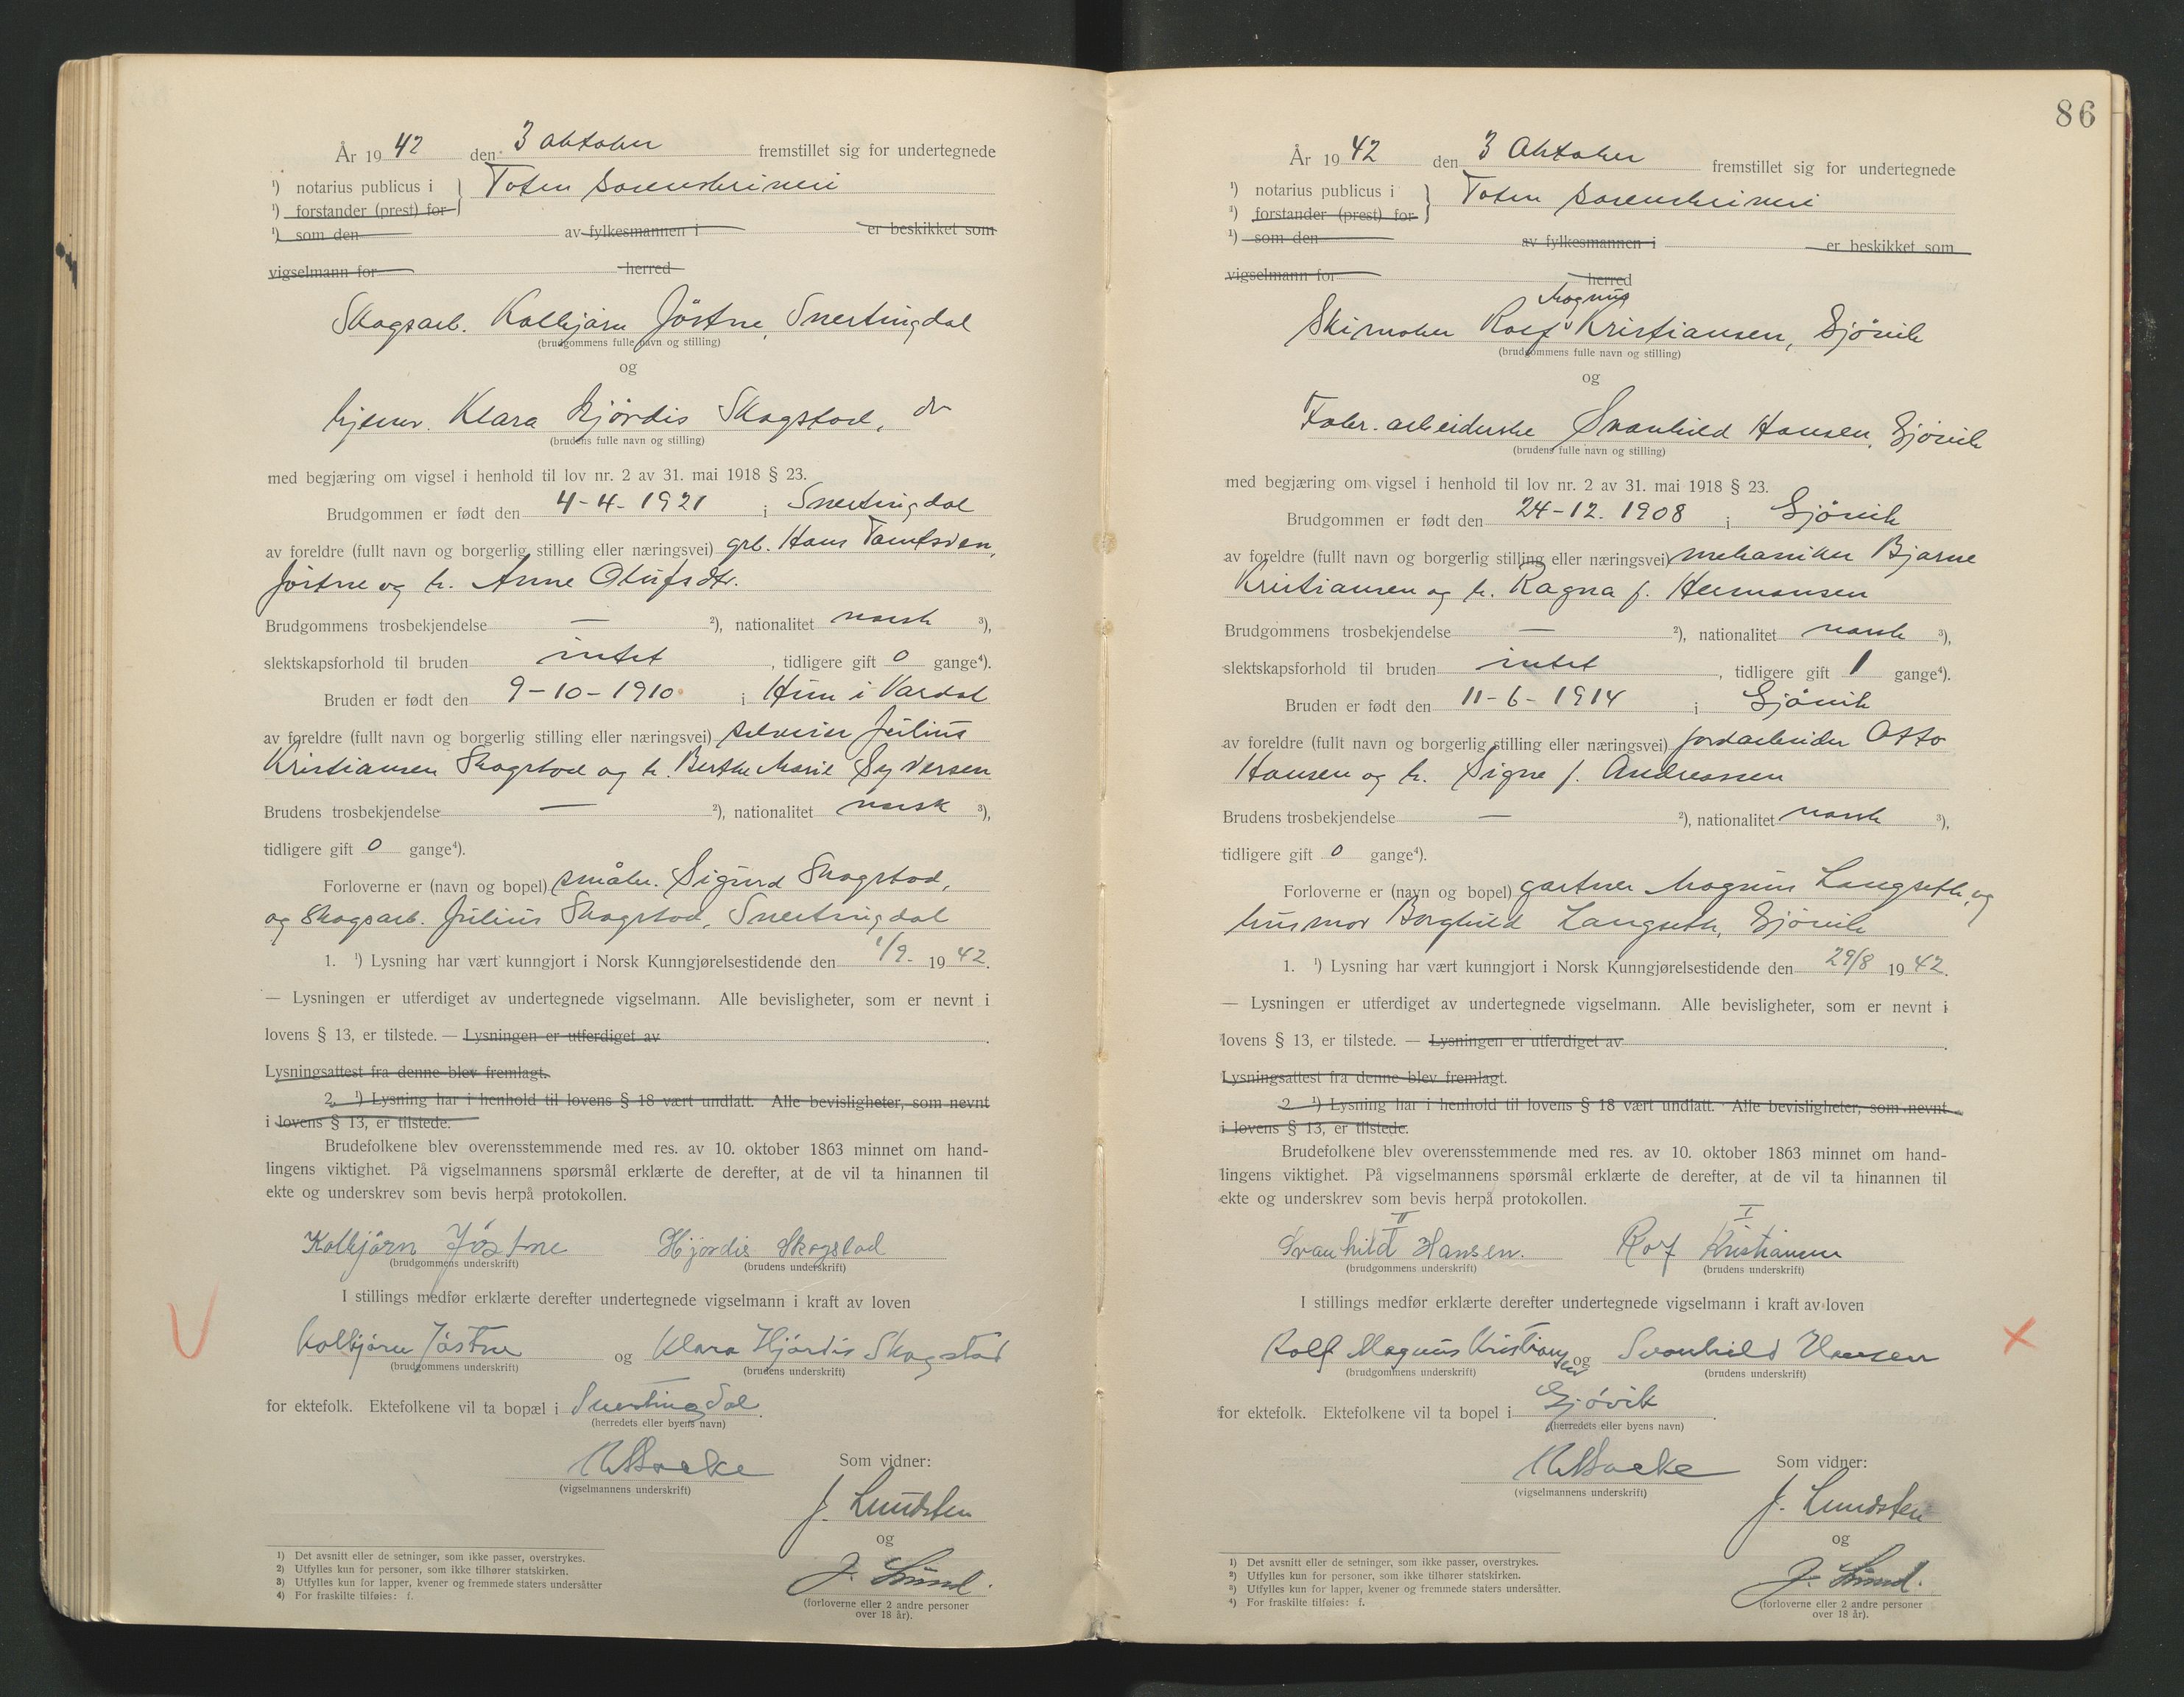 År 1942 den 3 Oktober fremstillet sig for undertegnede
¹) notarius publicus i } Toten sorenskriveri
¹) forstander (prest) for
¹) som den av fylkesmannen i er beskikket som
vigselmann for herred
Skogsarb. Kolbjørn Jöstne, Snertingdal
(brudgommens fulle navn og stilling)
og
hjemv. Klara Hjördis Skogstad, do
(brudens fulle navn og stilling)
med begjæring om vigsel i henhold til lov nr. 2 av 31. mai 1918 § 23.
Brudgommen er født den 4-4-1921 i Snertingdal
av foreldre (fullt navn og borgerlig stilling eller næringsvei) grb. Hans
Jöstne og h. Anne Olufsdtr.
Brudgommens trosbekjendelse — ²), nationalitet norsk ³),
slektskapsforhold til bruden intet, tidligere gift 0 gange⁴).
Bruden er født den 9-10-1910 i Hun i Vardal
av foreldre (fullt navn og borgerlig stilling eller næringsvei) selveier Julius
Kristiansen Skogstad og h. Berthe Marie Syversen
Brudens trosbekjendelse — ²), nationalitet norsk ³),
tidligere gift 0 gange⁴).
Forloverne er (navn og bopel) småbr. Sigurd Skogstad,
og Skogsarb. Julius Skogstad, Snertingdal
1. ¹) Lysning har vært kunngjort i Norsk Kunngjørelsestidende den 1/9- 1942.
— Lysningen er utferdiget av undertegnede vigselmann. Alle bevisligheter, som er nevnt i
lovens § 13, er tilstede. — Lysningen er utferdiget av .
Lysningsattest fra denne blev fremlagt.
2. ¹) Lysning har i henhold til lovens § 18 vært undlatt. Alle bevisligheter, som nevnt
i lovens § 13, er tilstede.
Brudefolkene blev overensstemmende med res. av 10. oktober 1863 minnet om hand-
lingens viktighet. På vigselmannens spørsmål erklærte de derefter, at de vil ta hinannen til
ekte og underskrev som bevis herpå protokollen.
Kolbjörn Jöstne Hjördis Skogstad
(brudgommens underskrift) (brudens underskrift)
I stillings medfør erklærte derefter undertegnede vigselmann i kraft av loven
Kolbjørn Jöstne og Klara Hjördis Skogstad
(brudgommens underskrift) (brudens underskrift)
for ektefolk. Ektefolkene vil ta bopæl i Snertingdal.
(herredets eller byens navn)
Som vidner:
(vigselmannens underskrift)
J. Lundsten
og
J. Lund.
(forloverne eller 2 andre personer
over 18 år).
1) Det avsnitt eller de setninger, som ikke passer, overstrykes.
2) Utfylles kun for personer, som ikke tilhører statskirken.
3) Utfylles kun for lapper, kvener og fremmede staters undersåtter
4) For fraskilte tilføies: f.
86
År 1942 den 3 Oktober fremstillet sig for undertegnede
¹) notarius publicus i } Toten sorenskriveri
¹) forstander (prest) for
¹) som den av fylkesmannen i er beskikket som
vigselmann for herred
Magnus
Skimaker Rolf Kristiansen, Gjövik
(brudgommens fulle navn og stilling)
og
Fabr. arbeiderske Svanhild Hansen, Gjövik
(brudens fulle navn og stilling)
med begjæring om vigsel i henhold til lov nr. 2 av 31. mai 1918 § 23.
Brudgommen er født den 24-12. 1908 i Gjövik
av foreldre (fullt navn og borgerlig stilling eller næringsvei) mekaniker Bjarne
Kristiansen og h. Ragna f. Hermansen
Brudgommens trosbekjendelse — ²), nationalitet norsk ³),
slektskapsforhold til bruden intet, tidligere gift 1 gange⁴).
Bruden er født den 11-6-1914 i Gjövik
av foreldre (fullt navn og borgerlig stilling eller næringsvei) jordarbeider Otto
Hansen og h. Signe f. Andreassen
Brudens trosbekjendelse — ²), nationalitet norsk ³),
tidligere gift 0 gange⁴).
Forloverne er (navn og bopel) gartner Magnus Langseth, og
husmor Borghild Langseth, Gjövik
1. ¹) Lysning har vært kunngjort i Norsk Kunngjørelsestidende den 29/8 1942.
— Lysningen er utferdiget av undertegnede vigselmann. Alle bevisligheter, som er nevnt i
lovens § 13, er tilstede. — Lysningen er utferdiget av .
Lysningsattest fra denne blev fremlagt.
2 ¹) Lysning har i henhold til lovens § 18 vært undlatt. Alle bevisligheter, som nevnt
i lovens § 13, er tilstede.
Brudefolkene blev overensstemmende med res. av 10. oktober 1863 minnet om hand-
lingens viktighet. På vigselmannens spørsmål erklærte de derefter, at de vil ta hinannen til
ekte og underskrev som bevis herpå protokollen.
II I
Svanhild Hansen. Rolf Kristiansen
(brudgommens underskrift) (brudens underskrift)
I stillings medfør erklærte derefter undertegnede vigselmann i kraft av loven
Rolf Magnus Kristiansen og Svanhild Hansen
(brudgommens underskrift) (brudens underskrift)
for ektefolk. Ektefolkene vil ta bopel i Gjövik.
(herredets eller byens navn)
Som vidner:
(vigselmannens underskrift)
J. Lundsten
og
J. Lund.
(forloverne eller 2 andre personer
over 18 år).
1) Det avsnitt eller de setninger, som ikke passer, overstrykes.
2) Utfylles kun for personer, som ikke tilhører statskirken.
3) Utfylles kun for lapper, kvener og fremmede staters undersåtter.
4) For fraskilte tilføies: f.